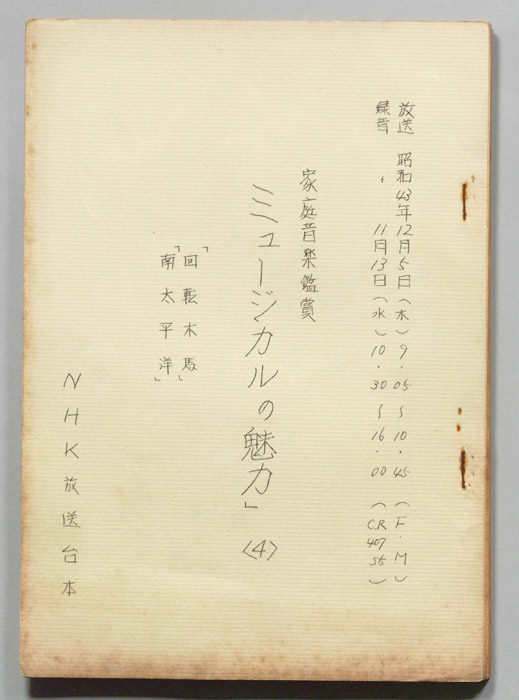 放送 昭和43年12月5日(木)9.05〜10.45(F.M)
録音 〃 11月13日(水)10.30〜16.00(CR407st)
家庭音楽鑑賞
ミュージカルの魅力」〈4〉
「回転木馬」
「南太平洋」
NHK放送台本